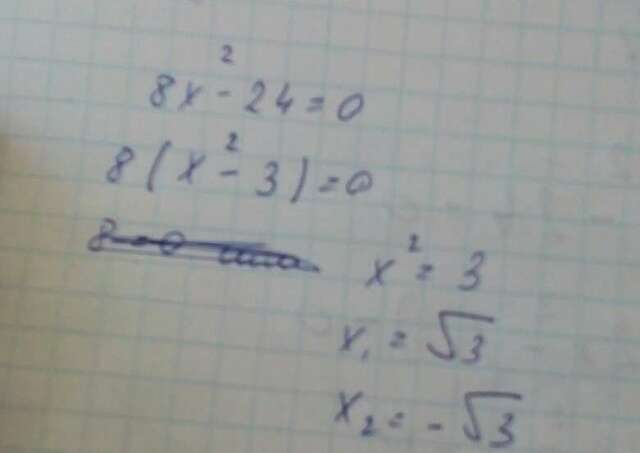 8x² - 24 = 0
8(x² - 3) = 0
x² = 3
x₁ = √3
x₂ = -√3